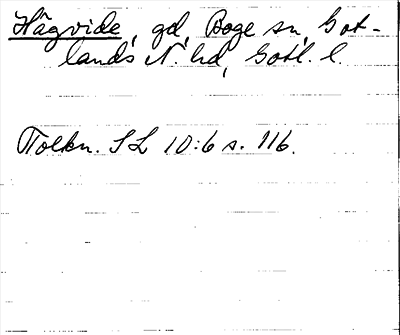 Hägvide, gd, Boge sn, Got-
lands N. hd, Gotl. l.
Tolkn. SL 10:6 s. 116.